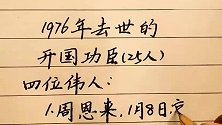 1976年去世的
开国功臣(25人)
四位伟人:
1.周恩来,1月8日,京